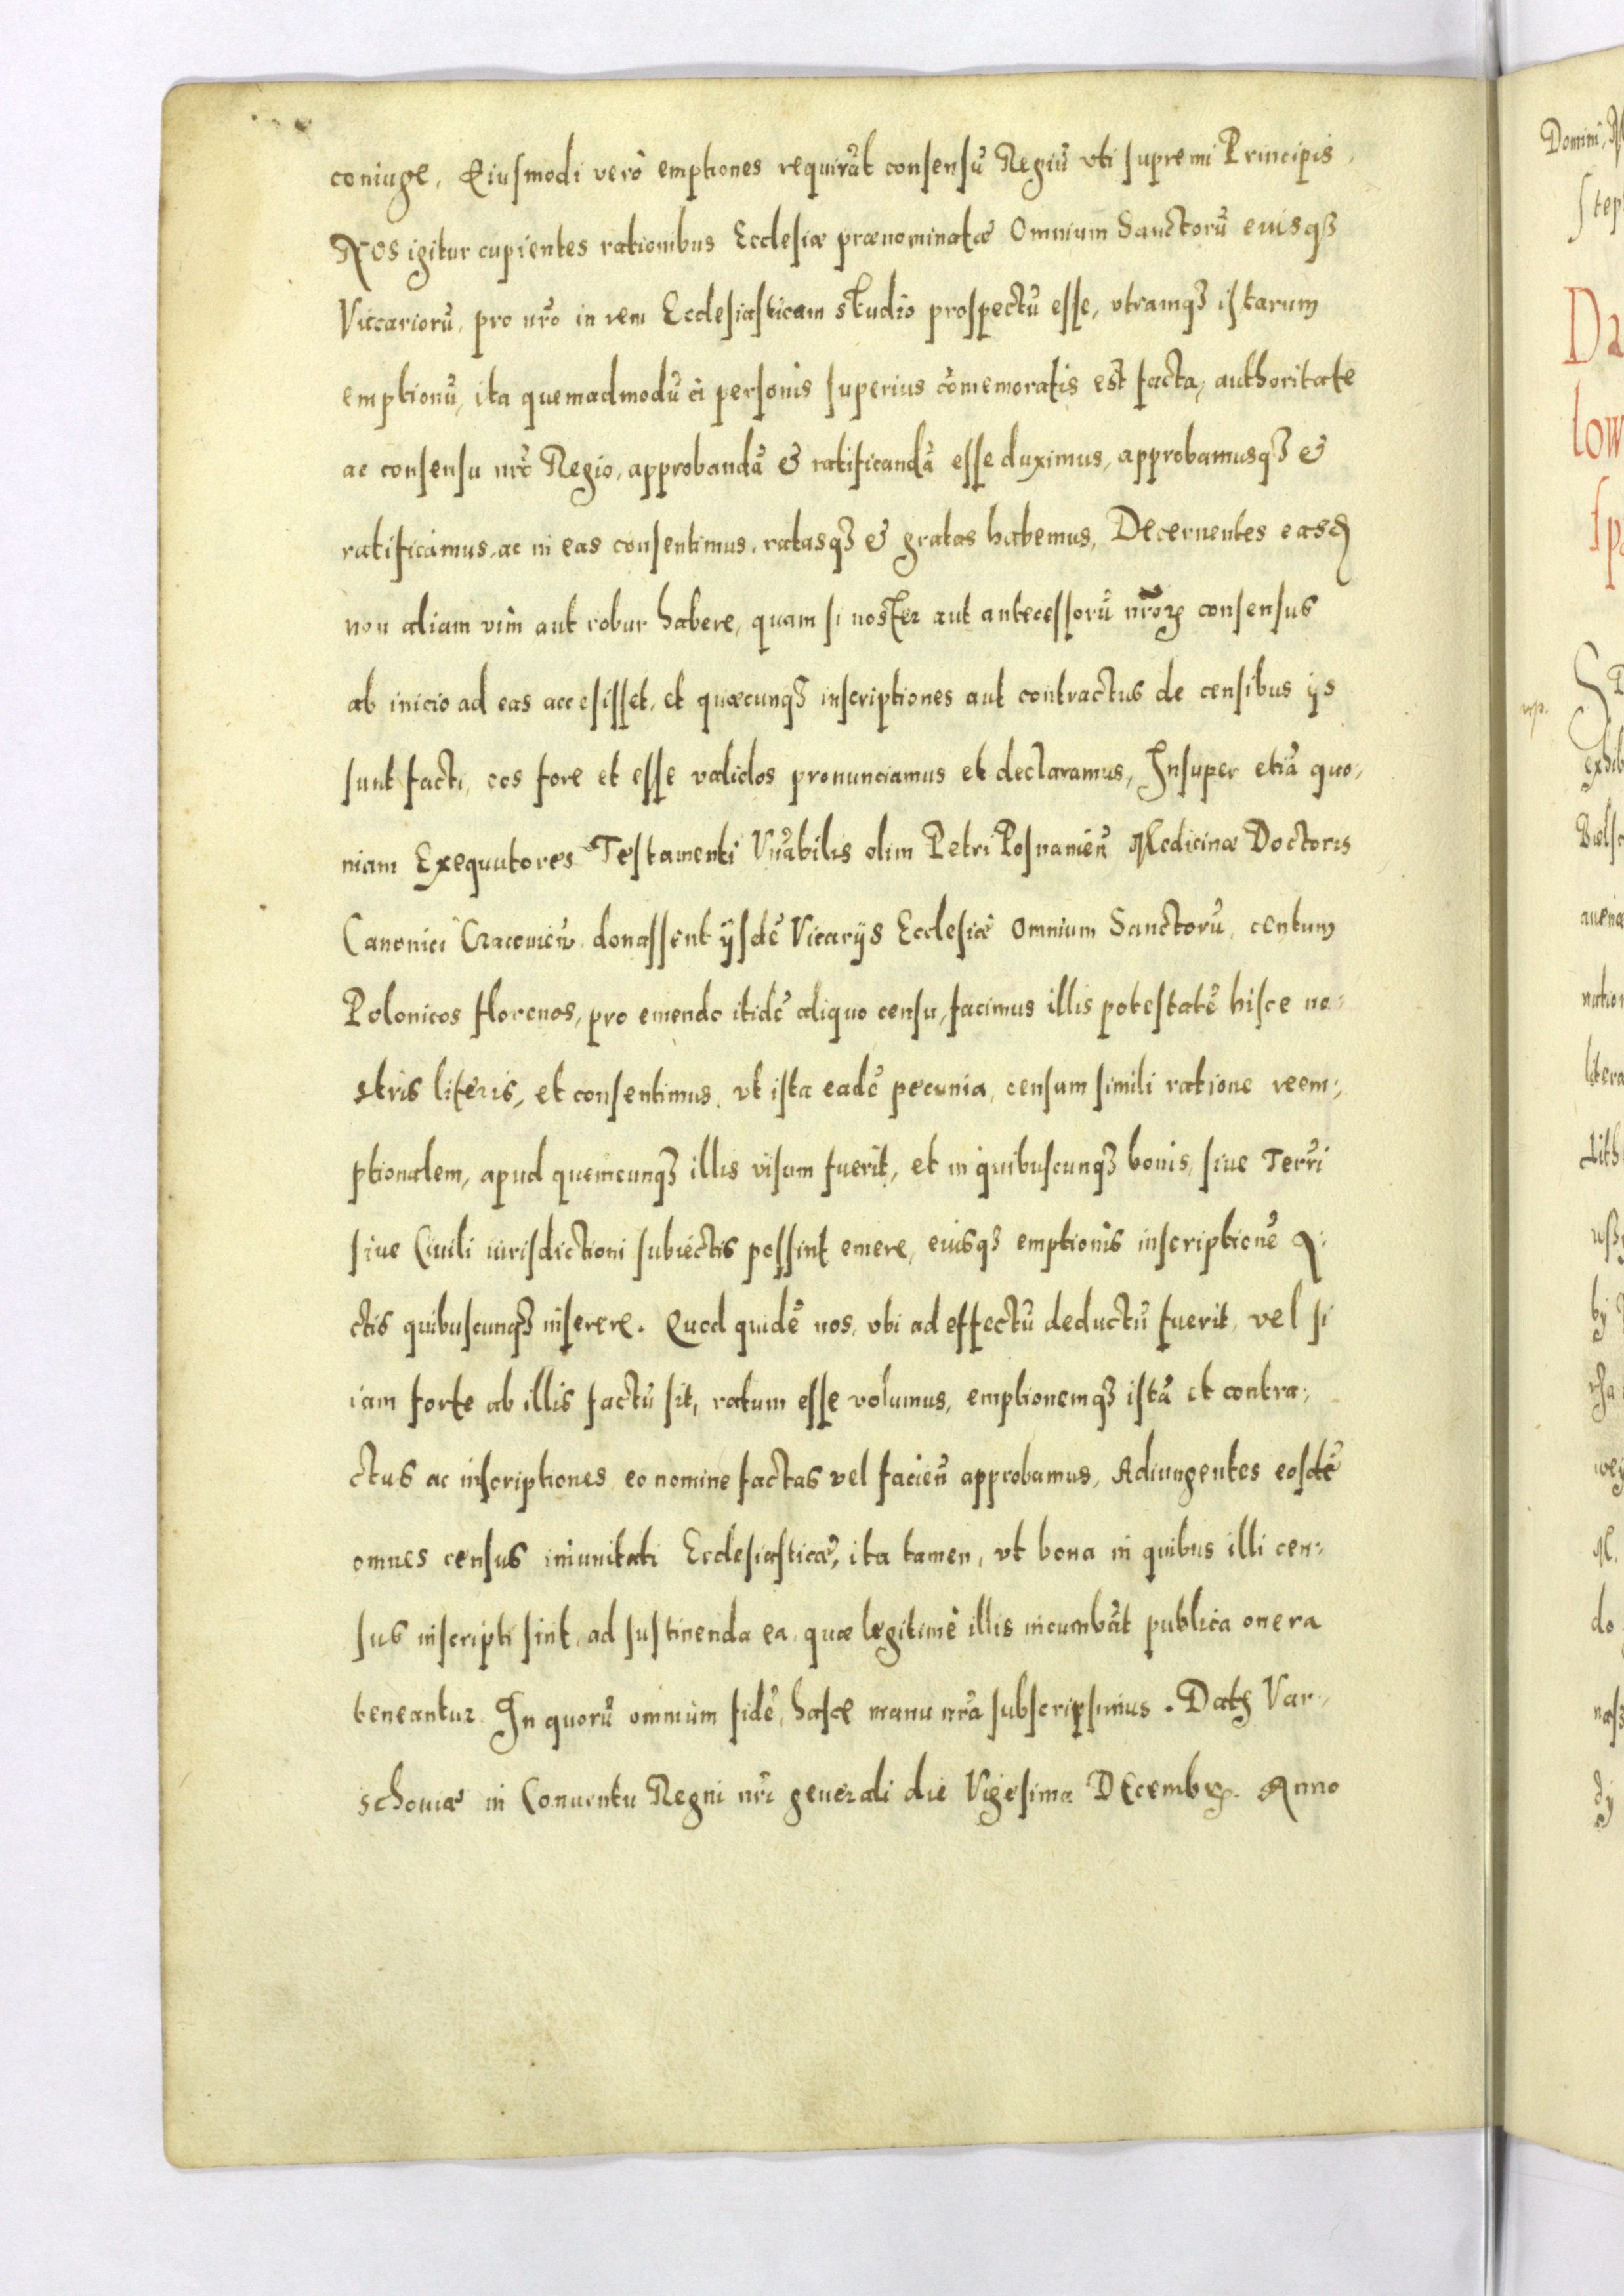 coniuge, Eiusmodi verò emptiones requirūt consensū Regiū vti supremi Principis,
Nos igitur cupientes rationibus Ecclesiæ prænominatæ Omnium Sanctorū eiusqȝ
Viccariorū, pro nr̄o in rem Ecclesiasticam studio prospectū esse, vtramqȝ istarum
emptionū, ita quemadmodū à personis superius cōmemoratis est facta, authoritate
ac consensu nr̄o Regio, approbandā & ratificandā esse duximus, approbamusqȝ &
ratificamus, ac in eas consentimus, ratasqȝ & gratas habemus, Decernentes easd
non aliam vim aut robur habere, quam si noster aut antecessorū nr̄oꝝ consensus
ab inicio ad eas accesisset, et quæcunqȝ inscriptiones aut contractus de censibus ijs
sunt facti, eos fore et esse validos pronunciamus et declaramus, Insuper etiā quo-
niam Exequutores Testamenti Vn̄abilis olim Petri Posnanien̄ Medicinæ Doctoris
Canonici Cracouien̄ donassent ijsdē Vicarijs Ecclesiæ Omnium Sanctorū, centum
Polonicos florenos, pro emendo itidē aliquo censu, facimus illis potestatē hisce no-
stris literis, et consentimus, vt ista eadē pecunia, censum simili ratione reem-
ptionalem, apud quemcunqȝ illis visum fuerit, et in quibuscunqȝ bonis, siue Terr̄i
siue Ciuili iurisdictioni subiectis possint emere, eiusqȝ emptionis inscriptionē A-
ctis quibuscunqȝ inserere. Quod quidē nos, vbi ad effectū deductū fuerit, vel si
iam forte ab illis factū sit, ratum esse volumus, emptionemqȝ istā et contra-
ctus ac inscriptiones eo nomine factas vel facien̄ approbamus, Adiungentes eosdē
omnes census im̄unitati Ecclesiasticæ, ita tamen, vt bona in quibus illi cen-
sus inscripti sint, ad sustinenda ea, quæ legitimè illis incumbūt publica onera
teneantur. In quorū omnium fidē, hasce manu nr̄a subscripsimus. Datȝ Var-
schouiæ in Conuentu Regni nr̄i generali die Vigesima Decembꝝ. Anno
Domini
step
Da
low
spa
exhib
Bielsc
auenæ
nation
litera
Lith
by
M.
do